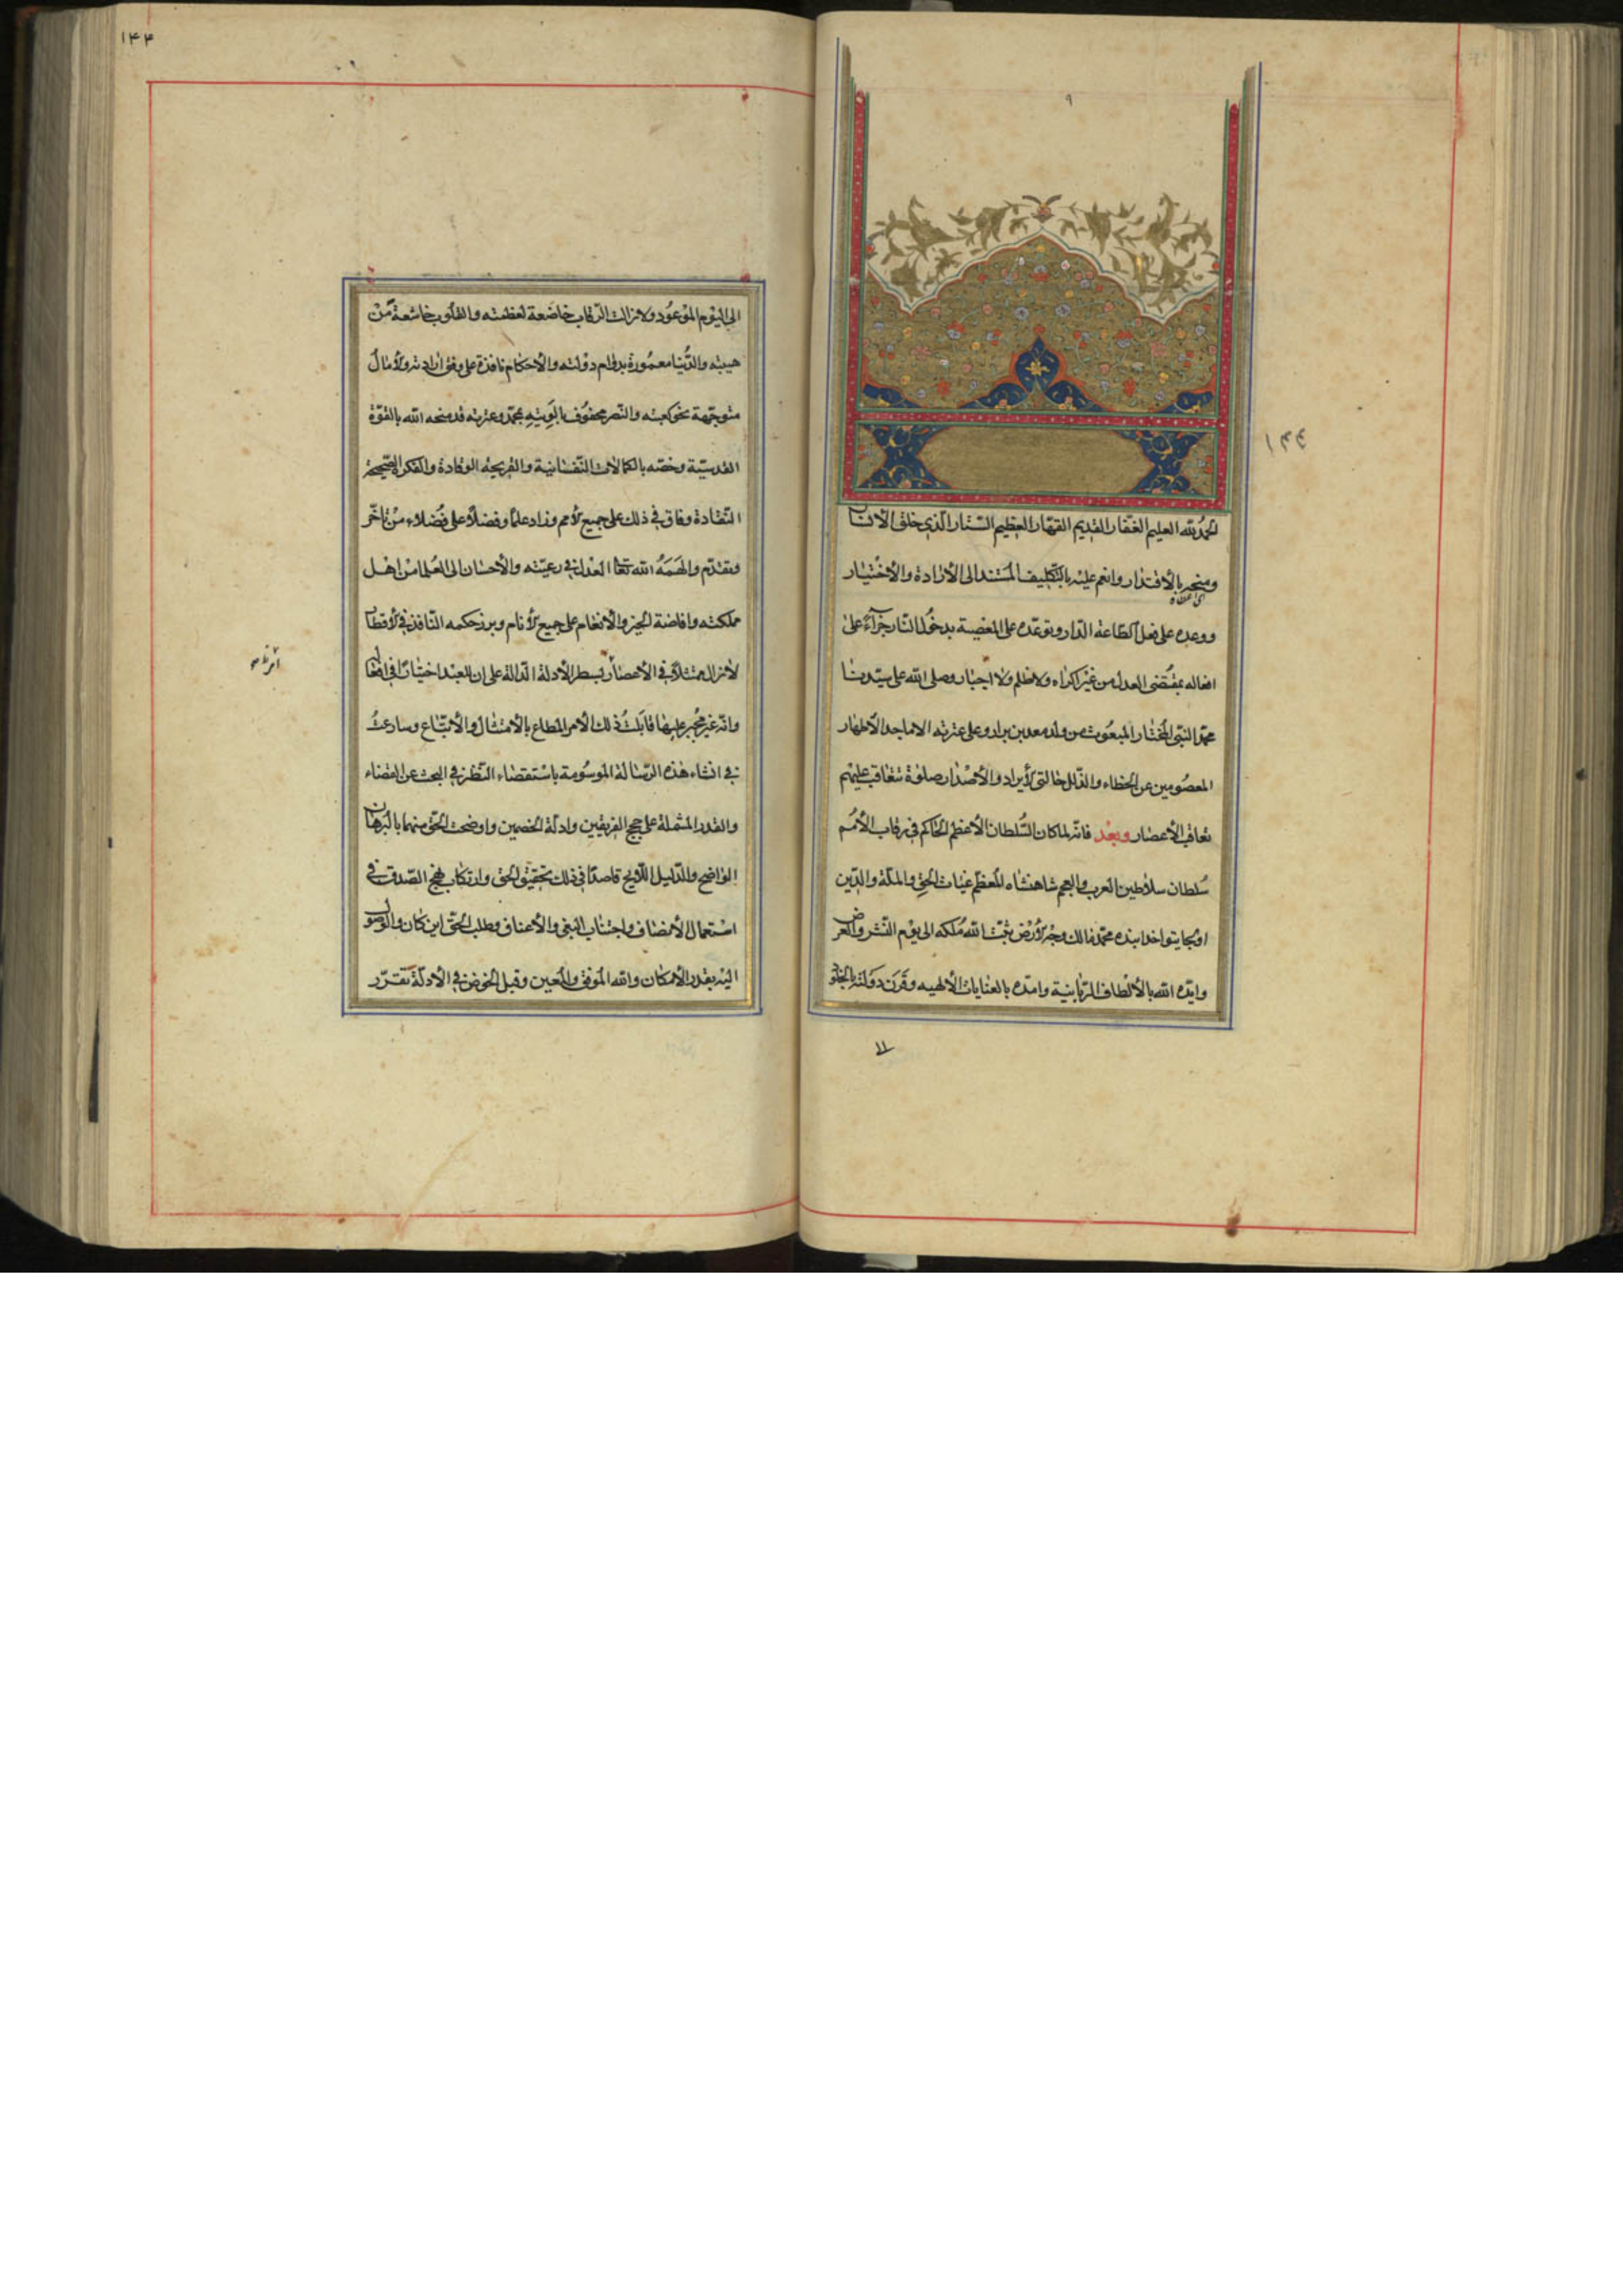 الحمد لله العليم الغفار القديم القهار العظيم الستار الذي خلق الانسان
ومنحه بالأقتدار وانعم عليه بالتكليف المستند الى الأرادة والأختيار
ووعده على فعل الطاعة الدار وتوعده على المعصية بدخول النار جزاءً على
افعاله بمقتضى العدل من غير اكراه ولا ظلم ولا اجبار وصلى الله على سيدنا
محمد النبي المختار المبعوث من ولد معد بن نزار وعلى عترته الاماجد الأطهار
المعصومين عن الخطاء والزلل حالتي لأيراد والأصدار صلوة تتعاقب عليهم
تعاقب الأعصار وبعد فانه لما كان السلطان الأعظم الحاكم في رقاب الأمم
سلطان سلاطين العرب والعجم شاهنشاه المعظم غياث الحق والملة والدين
اولجايتو خدابنده محمد مالك وجه لأرض ثبت الله ملكه الى يوم النشر والعرض
وايده الله بالألطاف الربانية وامده بالعنايات الألهيه وقرن دولته بالخلو
١٤٤
الى اليوم الموعود ولا زالت الرقاب خاضعة لعظمته والقلوب خاشعة من
هيبته والدنيا معمورة بدوام دولته والأحكام نافذة على وفق ارادته ولأمال
متوجهة نحو كعبته والنصر محفوف بالويته بمحمد وعترته قد منحه الله بالقوة
القدسية وخصه بالكمالات النفسانية والقريحة الوقادة والفكرة الصحيحة
النقادة وفاق في ذلك على جميع لأمم وزاد علما وفضلا على فضلاء من تأخر
وتقدم والهمه الله تعا العدل في رعيته والأحسان الى العلما من اهل
مملكته وافاضة الخير والأنعام على جميع لأنام وبرز حكمه النافذ في لأقطا
لازال ممتثلا في الأعصار بسطر الأدلة الدالة على ان للعبد اختيارًا في افعا
وانه غير مجبر عليها فقابلت ذلك الأمر المطاع بالأمتثال والأتباع وسارعت
في انشاء هذه الرسالة الموسومة باستقصاء النظر في البحث عن القضاء
والقدر المشملة على حجج الفريقين وادلة الخصمين واوضحت الحق منهما بالبرهان
الواضح والدليل اللايح قاصدًا في ذلك تحقيق الحق وارتكاب نهج الصدق في
استعمال الأنصاف واجتناب البغي والأعناف وطلب الحق اين كان والوصول
اليه بقدر الأمكان والله الموفق والمعين وقبل الخوض في الأدلة نقرر